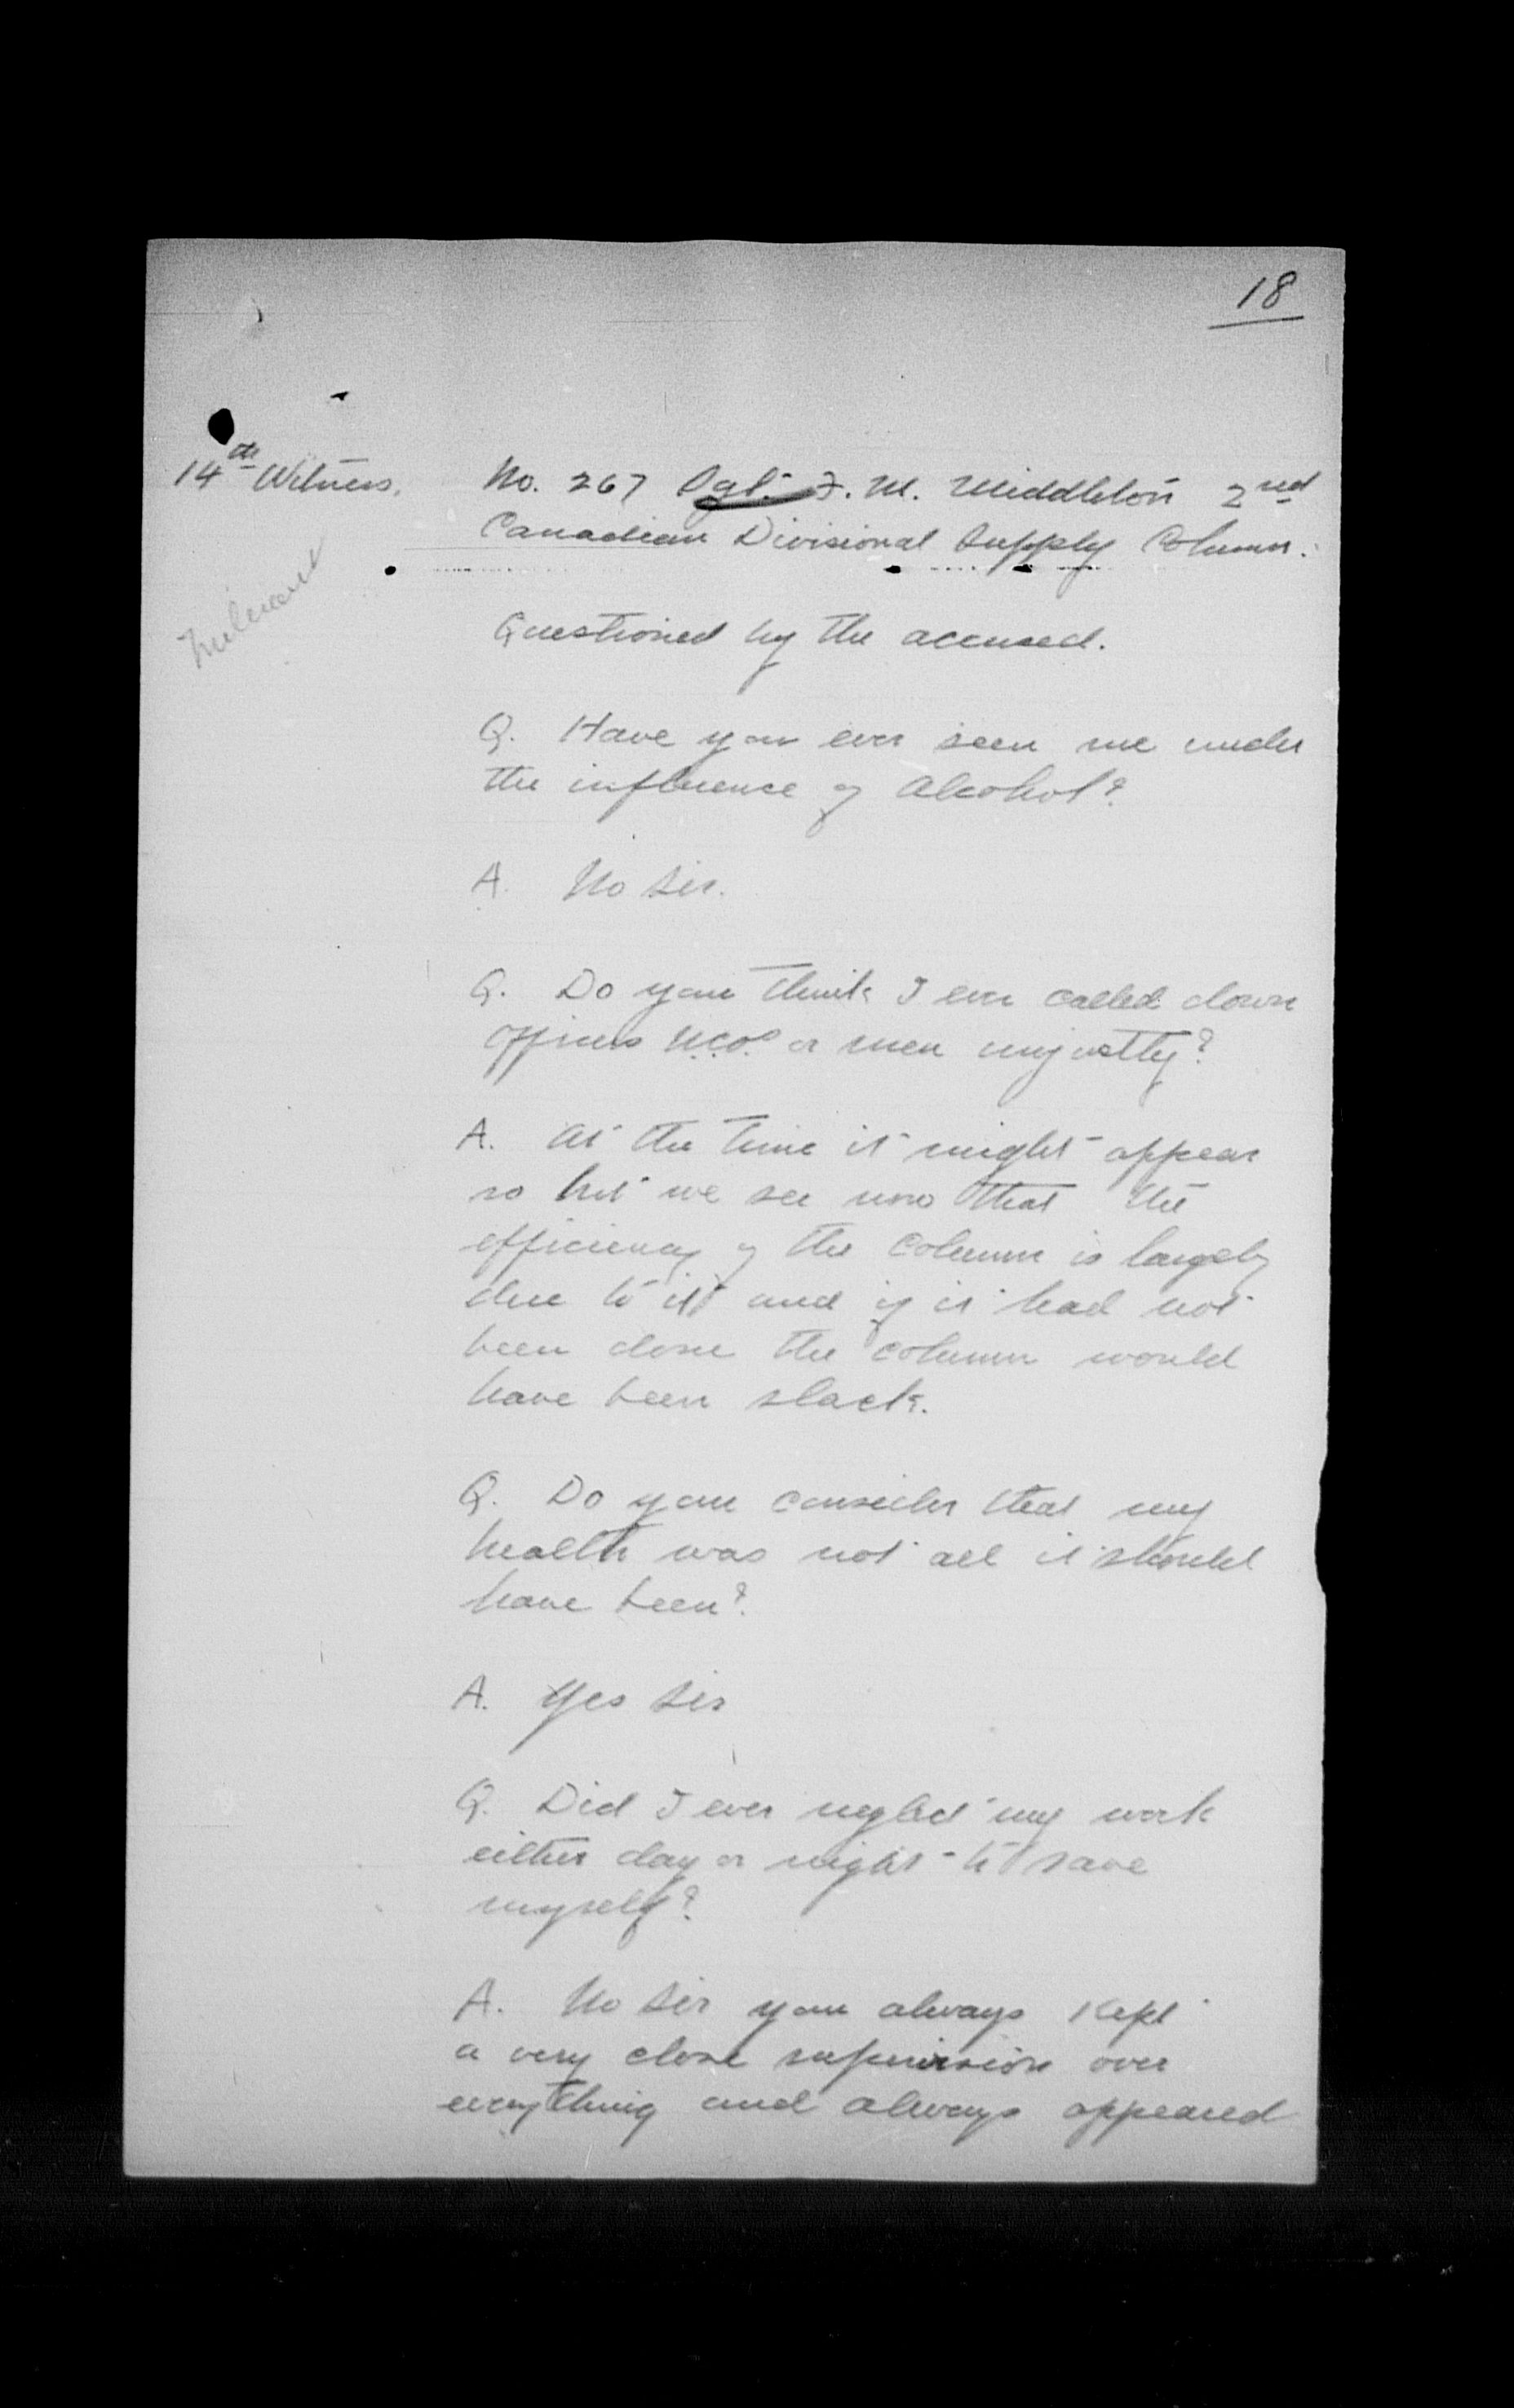 18
14th Witness.
No. 267 Sgt. F. M. Middleton 2nd
Canadian Divisional Supply Column.
Questioned by the accused.
Q. Have you ever seen me under
the influence of Alcohol?
A. No Sir.
Q. Do you think I ever called down
Officers N.C.Os or men unjustly?
A. At the time it might appear
so but we see now that the
efficiency of the Column is largely
due to it and if it had not
been done the column would
have been slack.
Q. Do you consider that my
health was not all it should
have been?
A. Yes Sir
Q. Did I ever neglect my work
either day or night to save
myself?
A. No Sir you always kept
a very close supervision over
everything and always appeared